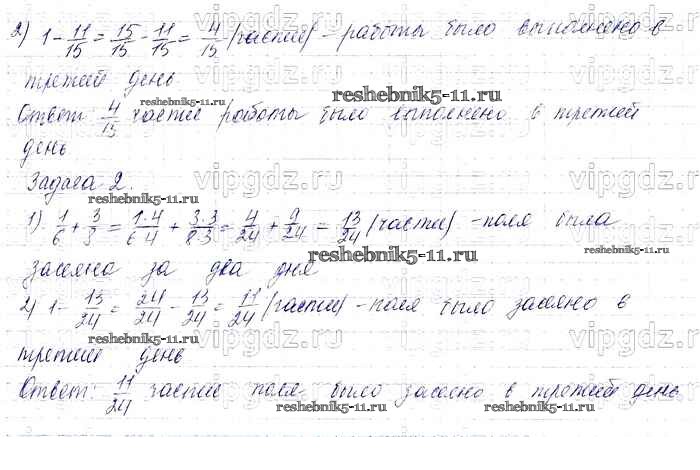 2) 1 - 11/15 = 15/15 - 11/15 = 4/15 (частей) - работы было выполнено в
третий день
Ответ: 4/15 частей работы было выполнено в третий
день
Задача 2.
1) 1/6 + 3/8 = 1·4/6·4 + 3·3/8·3 = 4/24 + 9/24 = 13/24 (частей) - поля была
засеяно за два дня
2) 1 - 13/24 = 24/24 - 13/24 = 11/24 (частей) - поля было засеяно в
третий день
Ответ: 11/24 частей поля было засеяно в третий день
vipgdz.ru
reshebnik5-11.ru